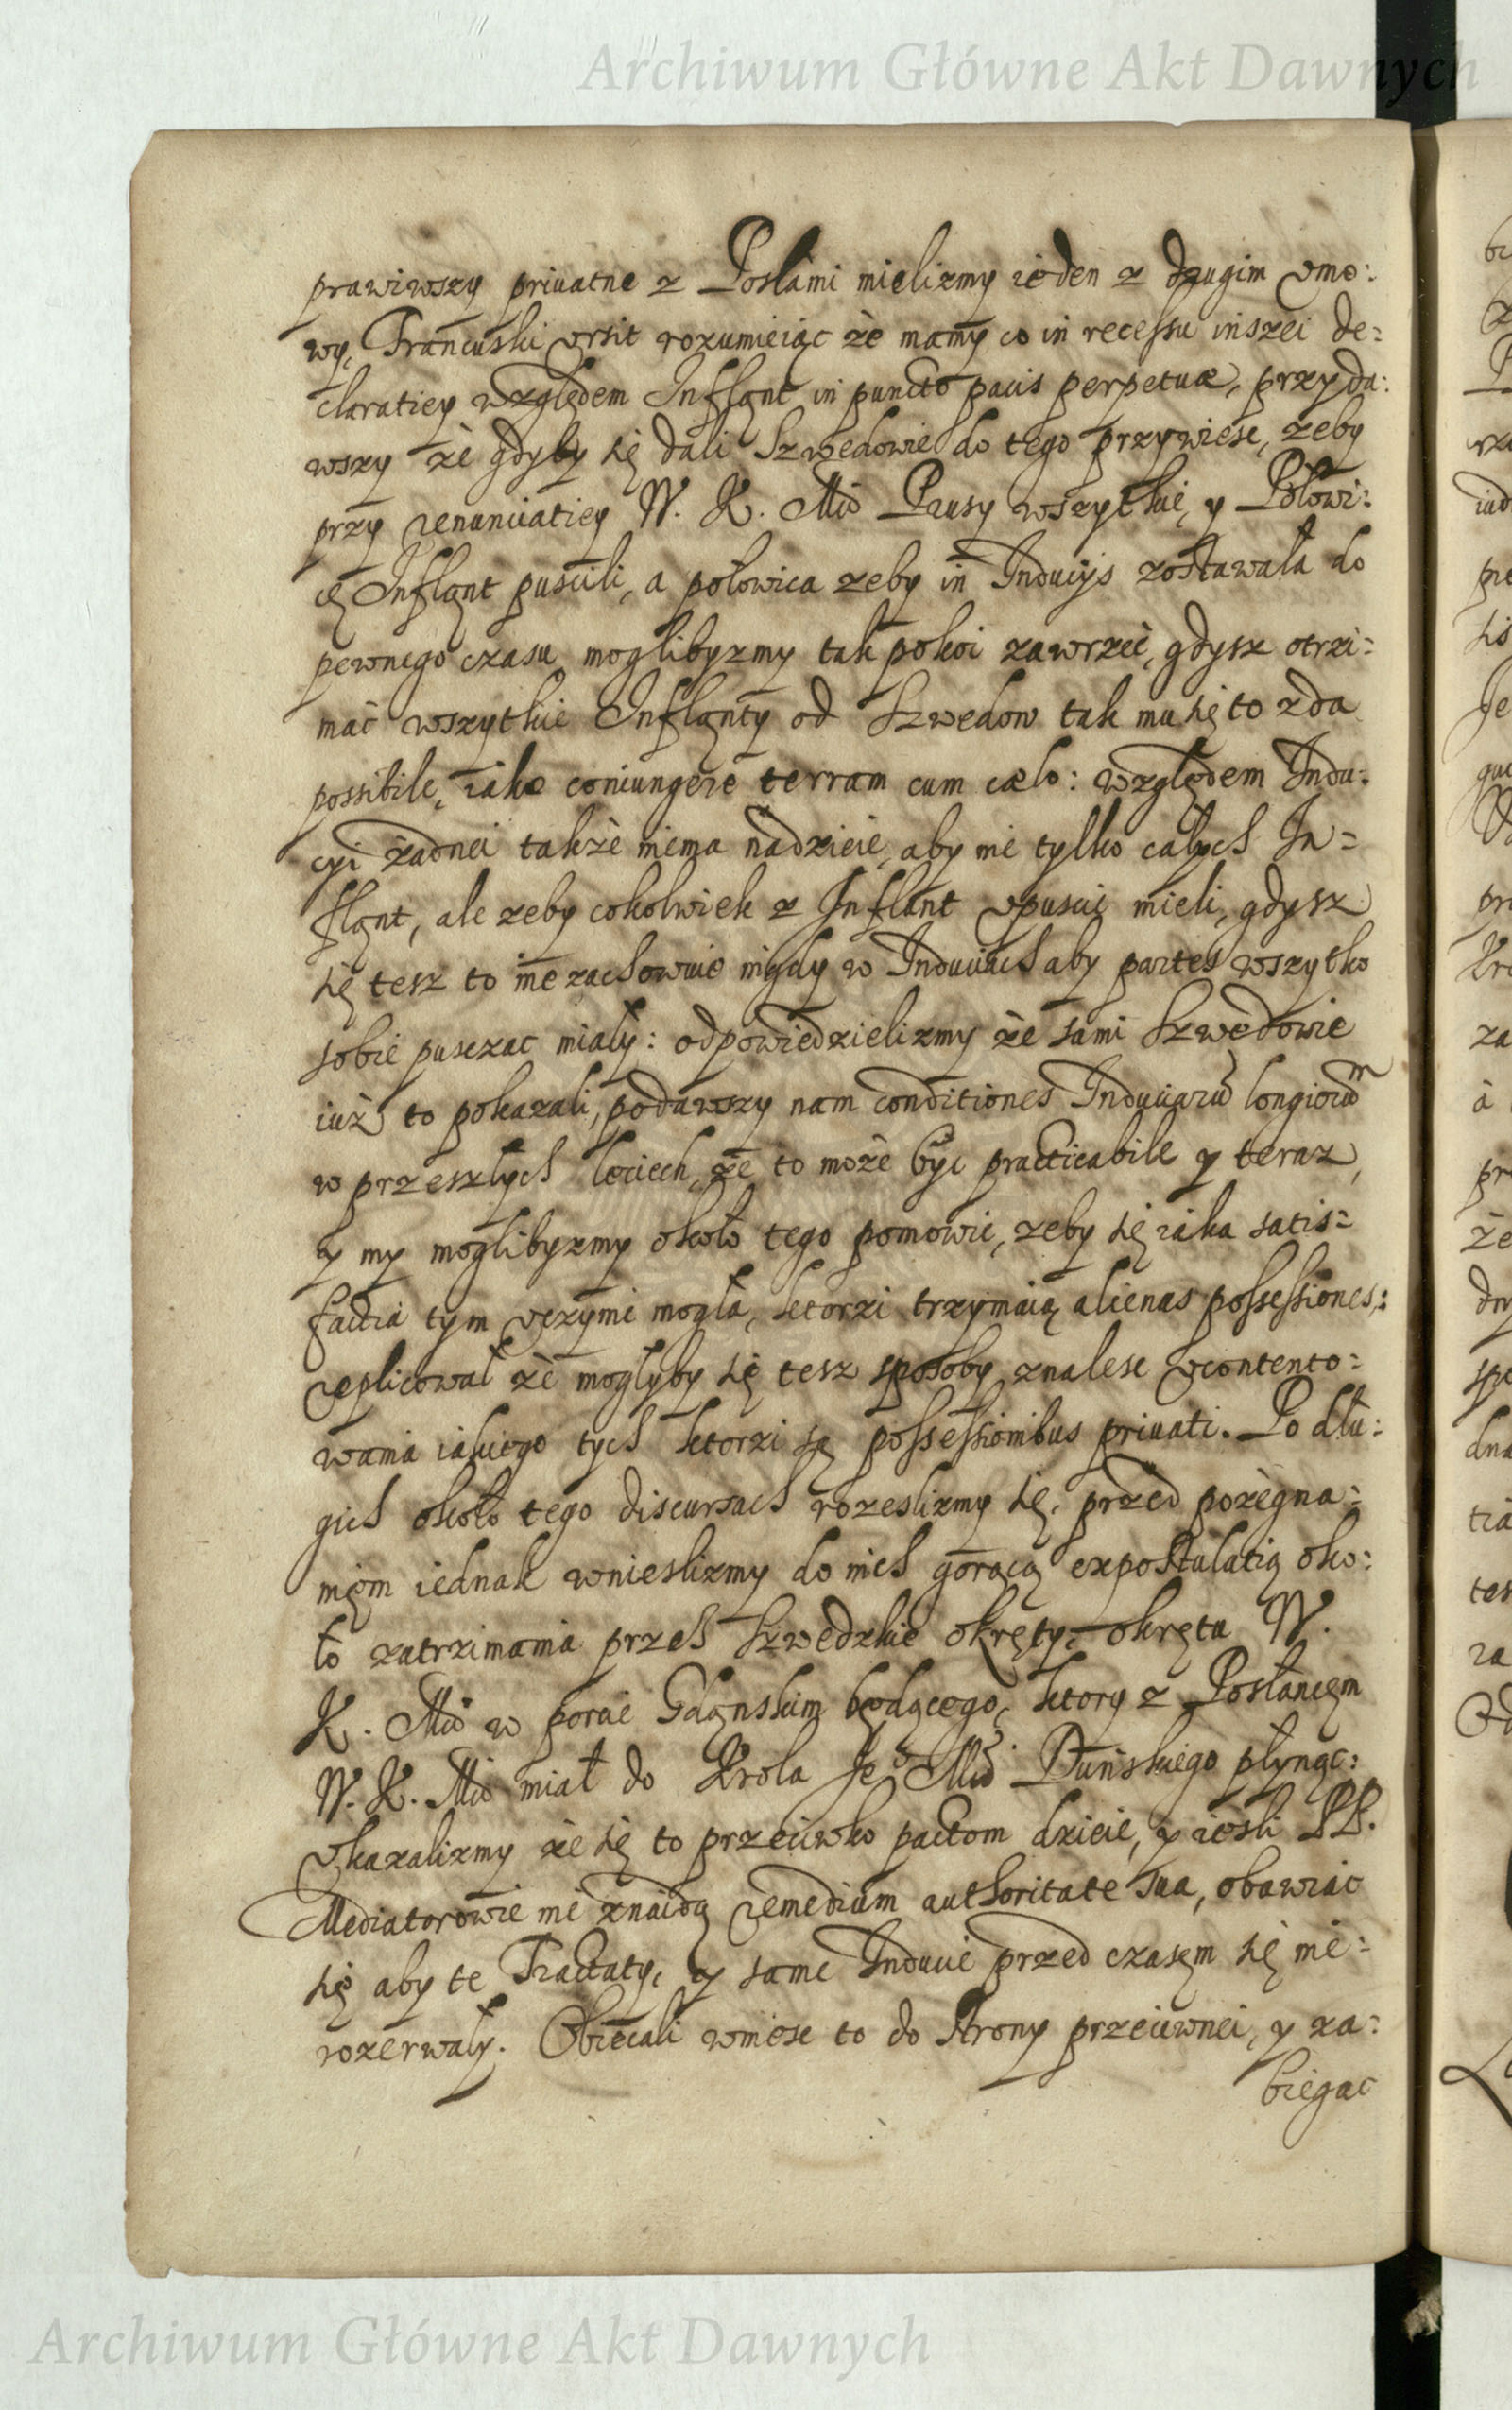 Archiwum Główne Akt Dawnych
prawiwszy priuatne z Posłami mielizmy ieden z drugim vmo:
wy, Francuski vrsit rozumieiąc że mamy co in recessu inszei de:
claratiey względem Inflant in puncto pacis perpetuæ, przyda:
wszy że gdyby się dali Szwedowie do tego przywiesc, zeby
przy renuntiatiey W. K. Mci Prusy wszytkie, y Połowi:
cę Inflant puscili, a połowica zeby in Inducijs zostawała do
pewnego czasu moglibyzmy tak pokoi zawrzec, gdysz otrzi:
mac wszytkie Inflanty od Szwedow tak mu się to zda
possibile, iako coniungere terram cum cælo: względem Indu:
cyi żadnei także niema nadzieie, aby nie tylko całych In=
flant, ale zeby cokolwiek z Inflant vpuscic mieli, gdysz
się tesz to nie zachowuie nigdy w Induciach aby partes wszytko
sobie puszczac miały: odpowiedzielizmy że sami Szwedowie
iuż to pokazali, podawszy nam conditiones Induciarū longiorūm
w przeszłych leciech, że to może być practicabile y teraz,
y my moglibyzmy około tego pomowic, zeby się iaka satis=
factia tym vczynic mogła, ktorzi trzymaią alienas possessiones,:
replicował że mogłyby się tesz sposoby znalesc vcontento:
wania iakiego tych ktorzi są possessionibus priuati. Po dłu:
gich około tego discursach rozeslizmy się. przed pożegna:
niem iednak wnieslizmy do nich gorącą expostulatią oko:
ło zatrzimania przes Szwedzkie okręty, okrętu W.
K. Mci w porcie Gdanskim będącego, ktory z Posłancem
W. K. Mci miał do Krola Je° Mci Dunskiego płynąc:
vkazalizmy że się to przeciwko pactom dzieie, y iesli PP.
Mediatorowie nie znaidą remedium authoritate sua, obawiac
się aby te Tractaty, y same Inducie przed czasem się nie:
rozerwały. Obiecali wniesc to do strony przeciwnei, y za:
biegac
Archiwum Główne Akt Dawnych